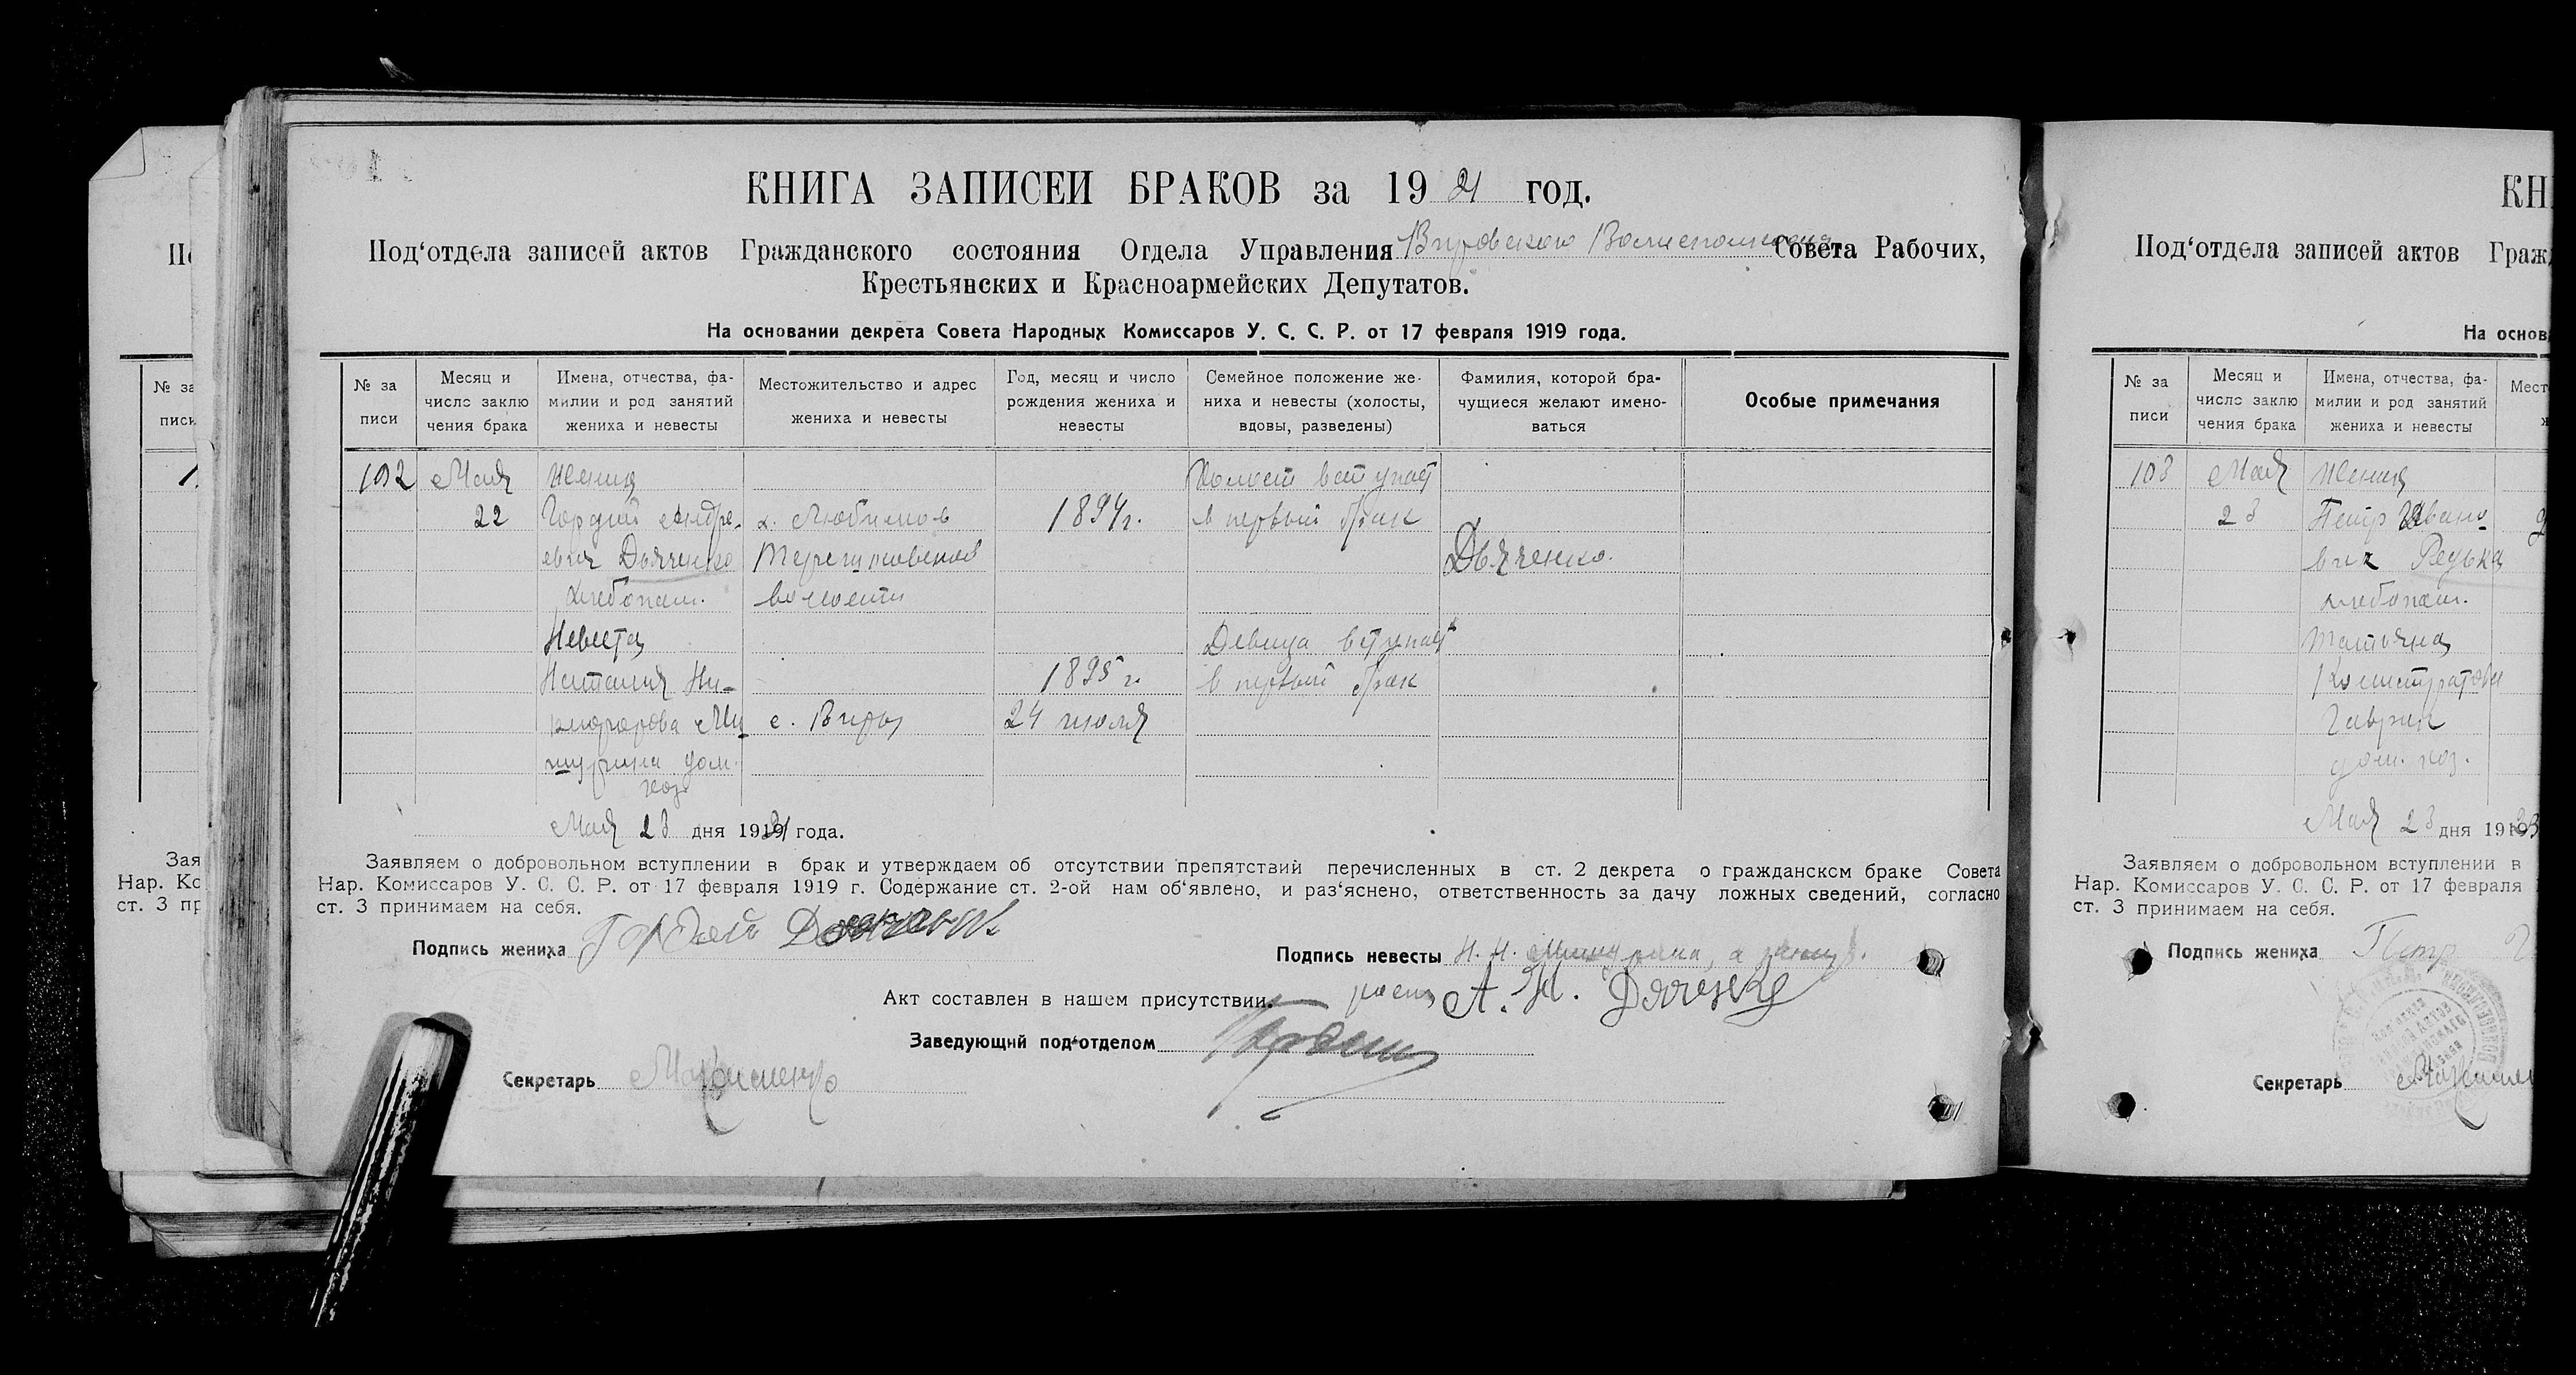 КНИГА ЗАПИСЕЙ БРАКОВ за 1921 год.
Под‘отдела записей актов Гражданского состояния Отдела Управления Вировского Волисполкома Совета Рабочих,
Крестьянских и Красноармейских Депутатов.
На основании декрета Совета Народных Комиссаров У. С. С. Р. от 17 февраля 1919 года.
№ за писи
Месяц и число заклю чения брака
Имена, отчества, фа- милии и род занятий жениха и невесты
Местожительство и адрес жениха и невесты
Год, месяц и число рождения жениха и невесты
Семейное положение же- ниха и невесты (холосты, вдовы, разведены)
Фамилия, которой бра- чущиеся желают имено- ваться
Особые примечания
102 Мая Жених Холост вступает
22 Гордий Андре- х. Любимов 1894 г. в первый брак
евич Дьяченко Дьяченко.
хлебопаш. волости
Невеста Девица вступает
Наталия Ни- 1895 г. в первый брак
кифорова Ми с. Виры 24 июля
шурина дом.
хоз.
Мая 23 дня 1921 года.
Заявляем о добровольном вступлении в брак и утверждаем об отсутствии препятствий перечисленных в ст. 2 декрета о гражданском браке Совета
Нар. Комиссаров У. С. С. Р. от 17 февраля 1919 г. Содержание ст. 2-ой нам об‘явлено, и раз‘яснено, ответственность за дачу ложных сведений, согласно
ст. 3 принимаем на себя.
Подпись жениха Гордей
Подпись невесты Н. Н. Мишурина, а
Акт составлен в нашем присутствии.
Заведующий под‘отделом
Секретарь
КН
Под‘отдела записей актов Гражд
На основ
№ за писи
Месяц и число заклю чения брака
Имена, отчества, фа- милии и род занятий жениха и невесты
Мест
103 Мая Жених
23 Петр Ивано
вич Редька
хлебопаш.
Татьяна
Гаврик
дом. хоз.
Мая 23 дня 19
Заявляем о добровольном вступлении в
Нар. Комиссаров У. С. С. Р. от 17 февраля
ст. 3 принимаем на себя.
Подпись жениха Петр
Секретарь
№ за
писи
Зая
Нар. Ко
ст. 3 пр